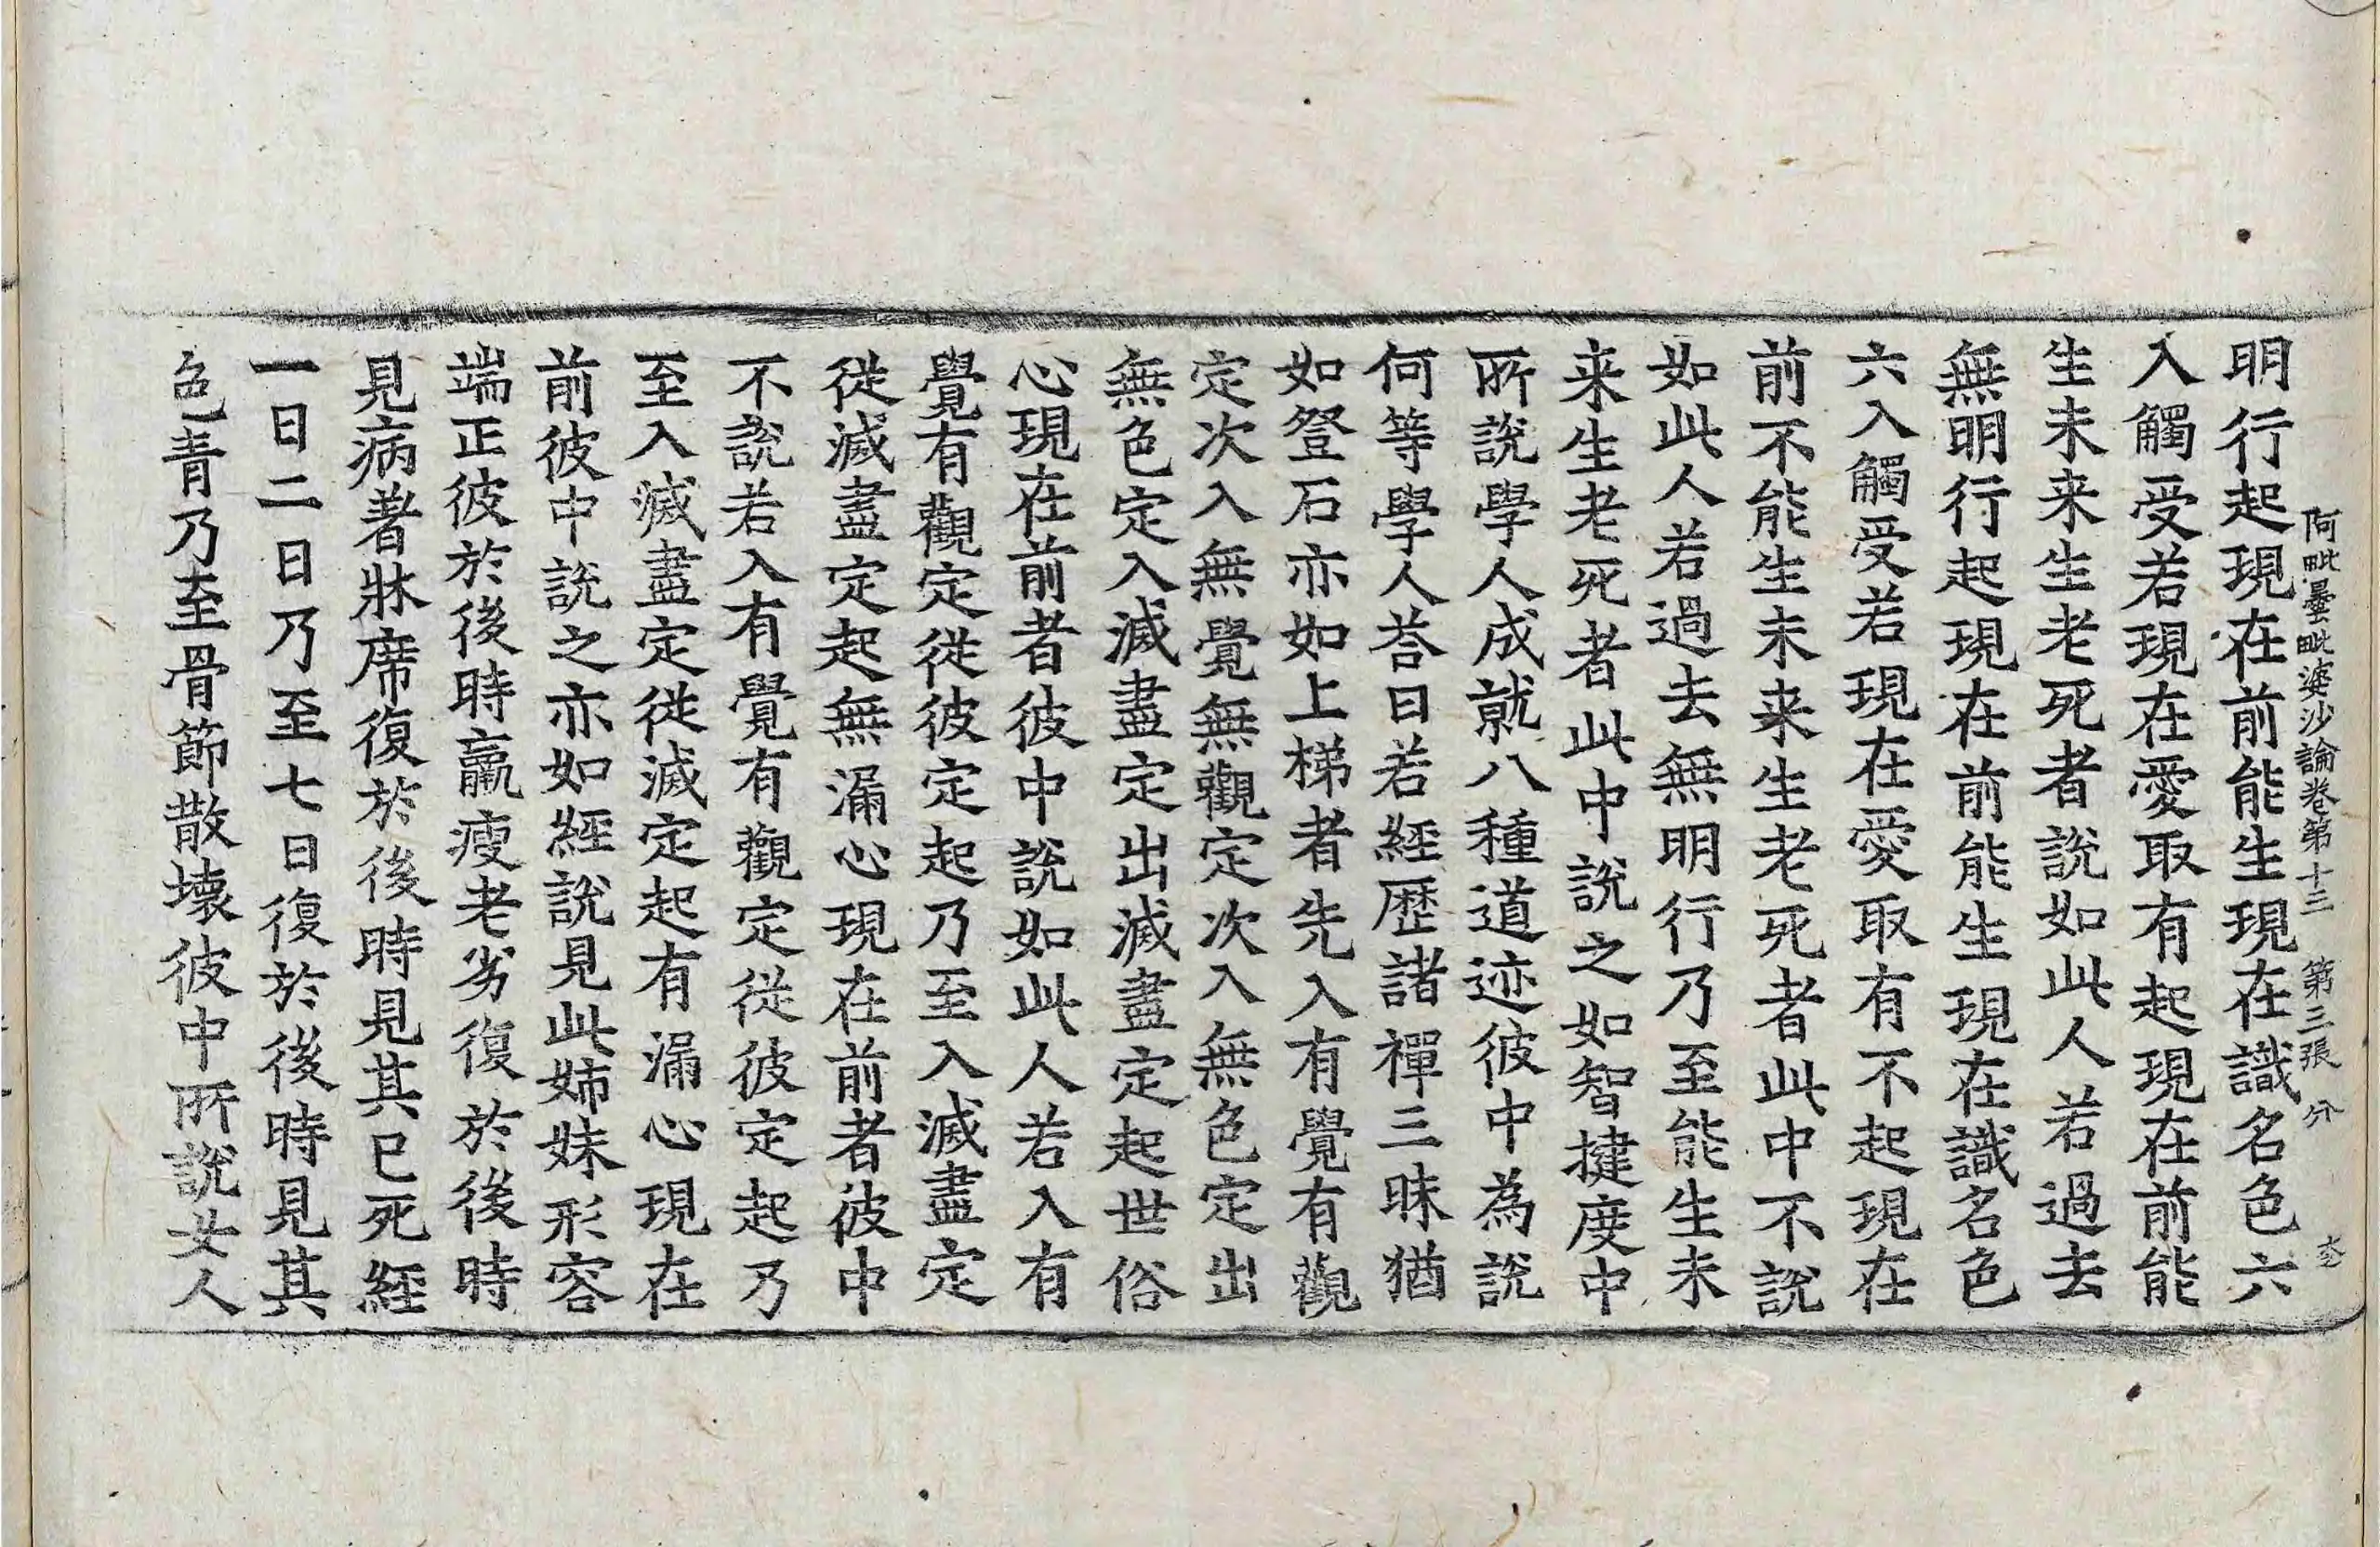 阿毗曇毗婆沙論卷第十三 第三張 分
明行起現在前能生現在識名色六
入觸受若現在愛取有起現在前能
生未来生老死者說如此人若過去
無明行起現在前能生現在識名色
六入觸受若現在愛取有不起現在
前不能生未来生老死者此中不說
如此人若過去無明行乃至能生未
来生老死者此中說之如智揵度中
所說學人成就八種道迹彼中為說
何等學人荅曰若經歷諸禪三昧猶
如登石亦如上梯者先入有覺有觀
定次入無覺無觀定次入無色定出
無色定入滅盡定出滅盡定起世俗
心現在前者彼中說如此人若入有
覺有觀定從彼定起乃至入滅盡定
從滅盡定起無漏心現在前者彼中
不說若入有覺有觀定從彼定起乃
至入滅盡定從滅定起有漏心現在
前彼中說之亦如經說見此姊妹形容
端正彼於後時羸瘦老劣復於後時
見病著牀席復於後時見其已死經
一日二日乃至七日復於後時見其
色青乃至骨節散壞彼中所說女人